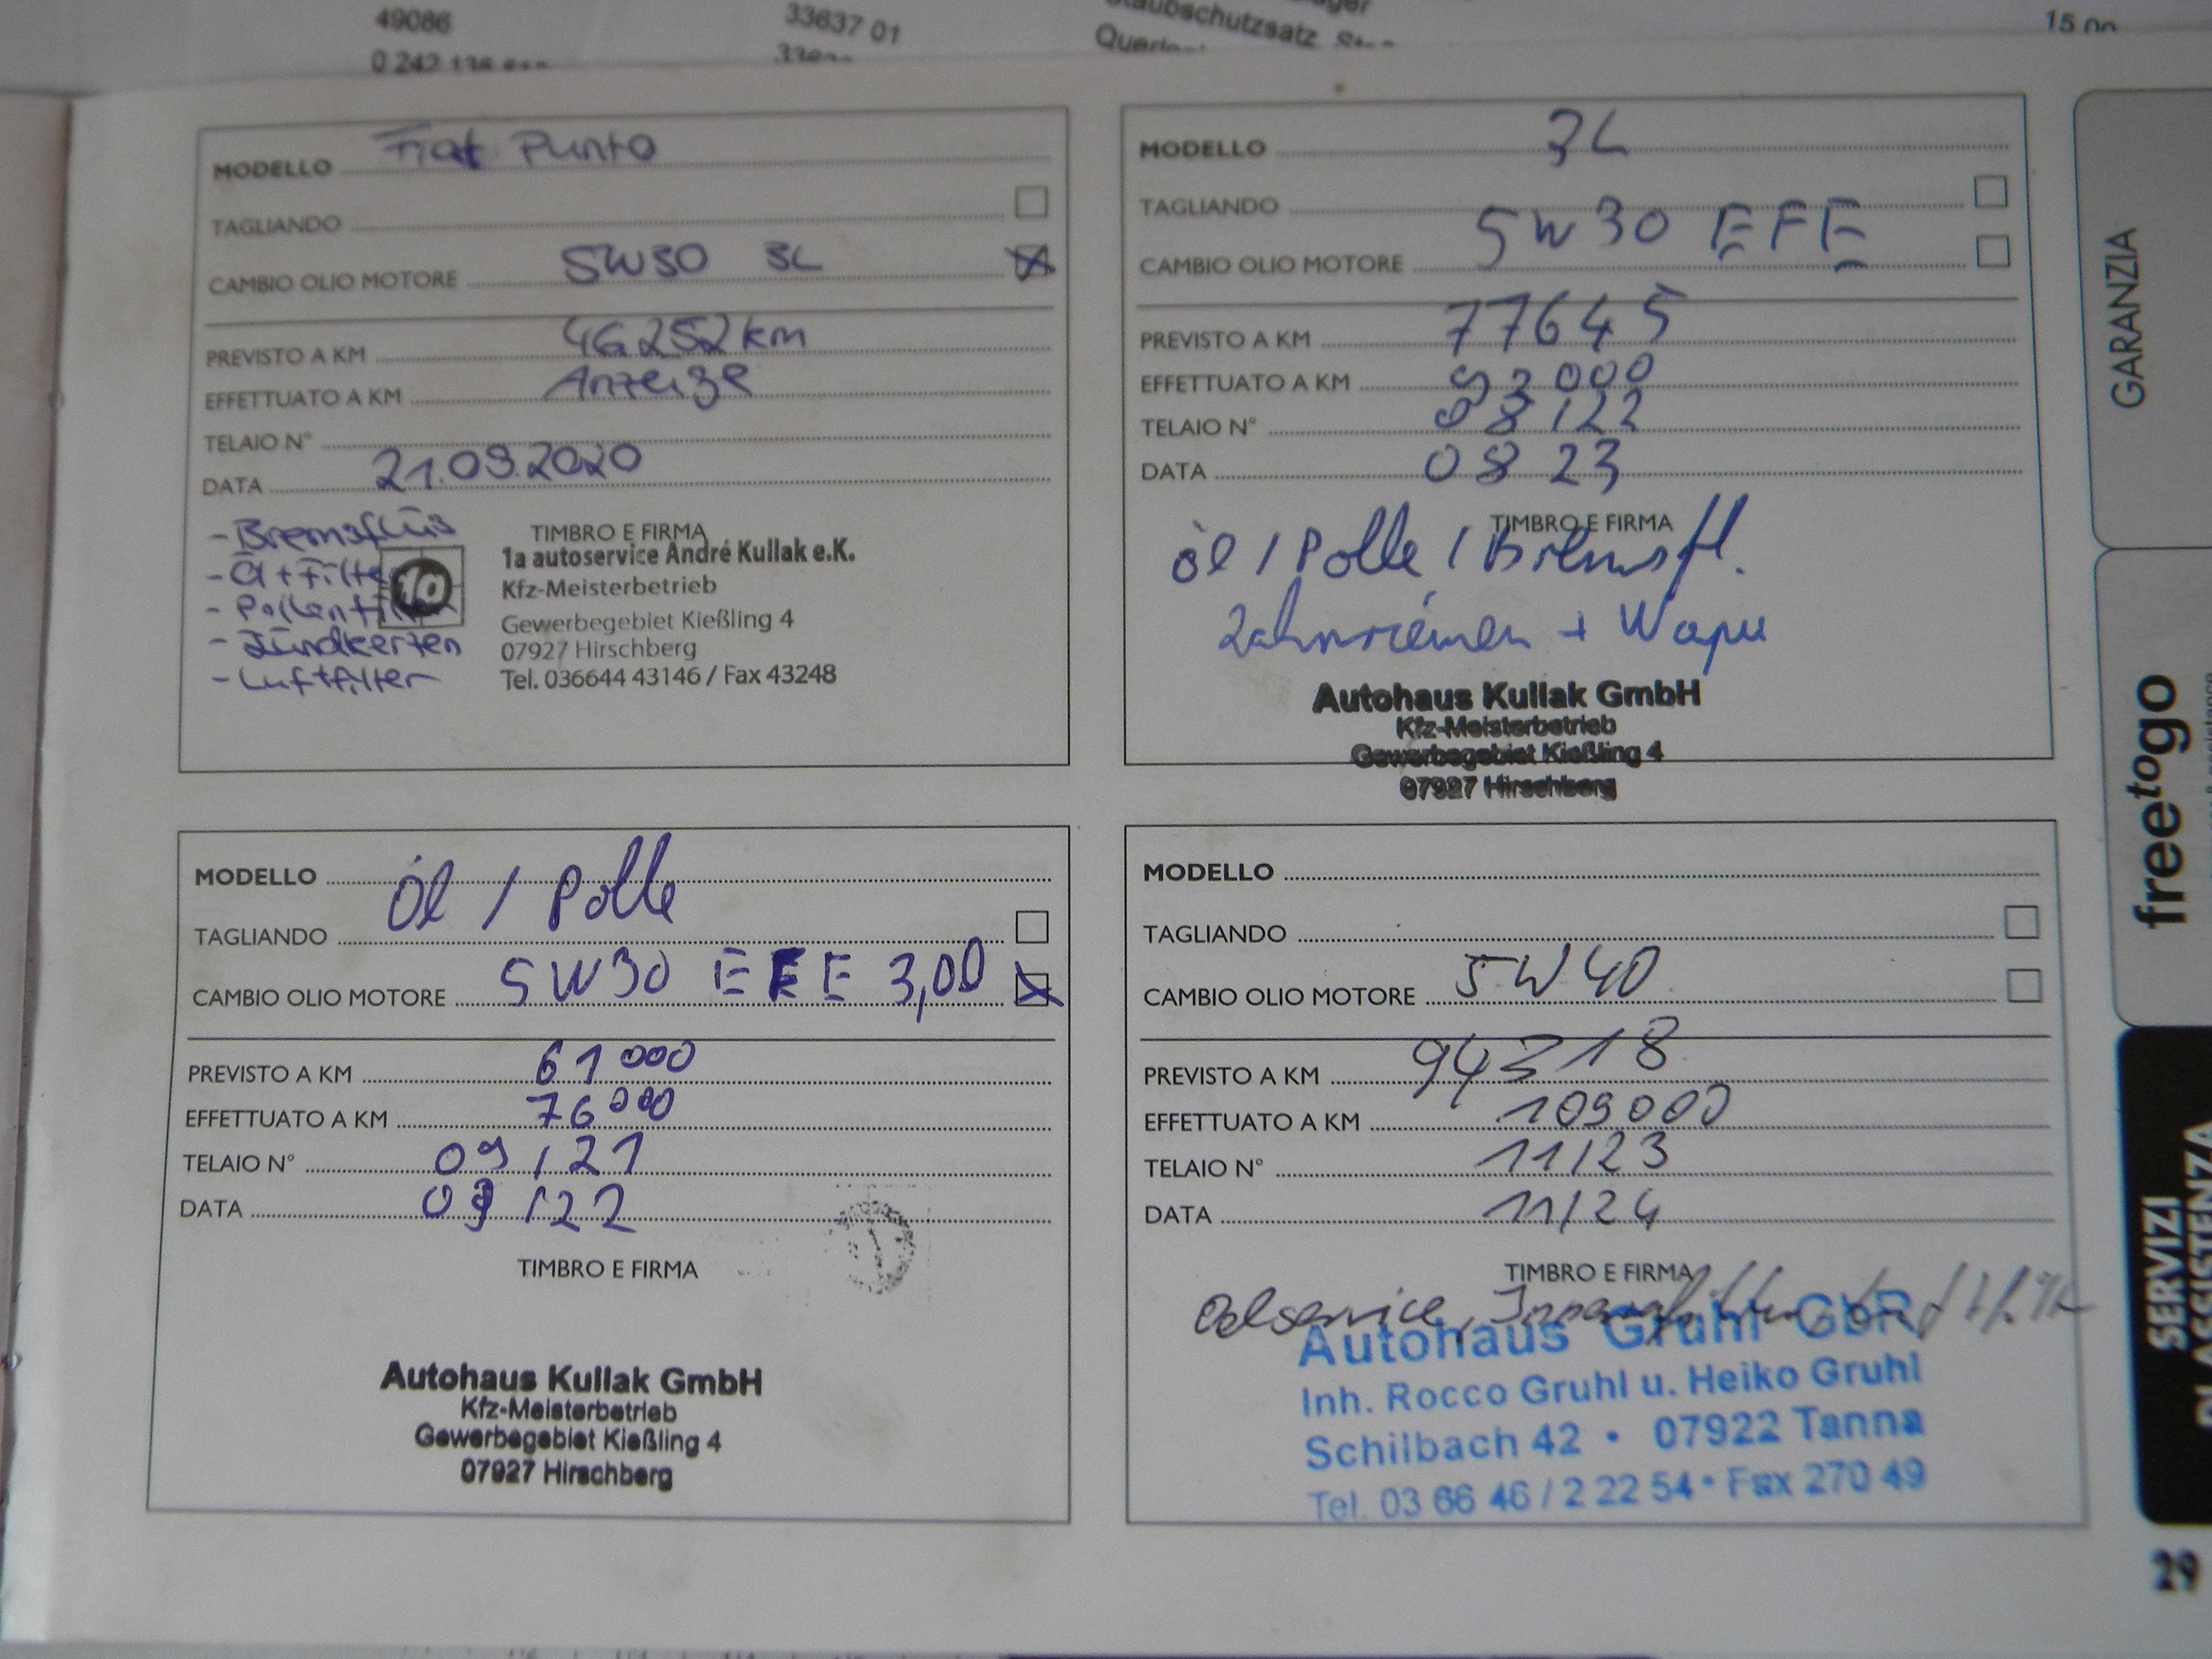 49086
33637 01
Staubschutzsatz
15.00
0 242
MODELLO Fiat Punto
TAGLIANDO
CAMBIO OLIO MOTORE 5W30 3L
PREVISTO A KM 46252km
EFFETTUATO A KM Anzeige
TELAIO N°
DATA 21.09.2020
- Bremsflüs
- Öl + Filter
- Pollenfilter
- Zündkerzen
- Luftfilter
TIMBRO E FIRMA
1a autoservice André Kullak e.K.
Kfz-Meisterbetrieb
Gewerbegebiet Kießling 4
07927 Hirschberg
Tel. 036644 43146 / Fax 43248
MODELLO 3L
TAGLIANDO
CAMBIO OLIO MOTORE 5W30 EFE
PREVISTO A KM 77645
EFFETTUATO A KM 93000
TELAIO N° 08/22
DATA 08 23
TIMBRO E FIRMA
öl / Polle / Bremsfl.
Zahnriemen + Wapu
Autohaus Kullak GmbH
Kfz-Meisterbetrieb
Gewerbegebiet Kießling 4
07927 Hirschberg
MODELLO Öl / Polle
TAGLIANDO
CAMBIO OLIO MOTORE 5W30 EFE 3,00
PREVISTO A KM 61000
EFFETTUATO A KM 76000
TELAIO N° 09/21
DATA 09/22
TIMBRO E FIRMA
Autohaus Kullak GmbH
Kfz-Meisterbetrieb
Gewerbegebiet Kießling 4
07927 Hirschberg
MODELLO
TAGLIANDO
CAMBIO OLIO MOTORE 5W40
PREVISTO A KM 94318
EFFETTUATO A KM 109000
TELAIO N° 11/23
DATA 11/24
TIMBRO E FIRMA
Oelservice, Innenraumfilter
Autohaus Gruhl GbR
Inh. Rocco Gruhl u. Heiko Gruhl
Schilbach 42 • 07922 Tanna
Tel. 03 66 46 / 2 22 54 • Fax 270 49
GARANZIA
freetogo
SERVIZI
DI ASSISTENZA
29